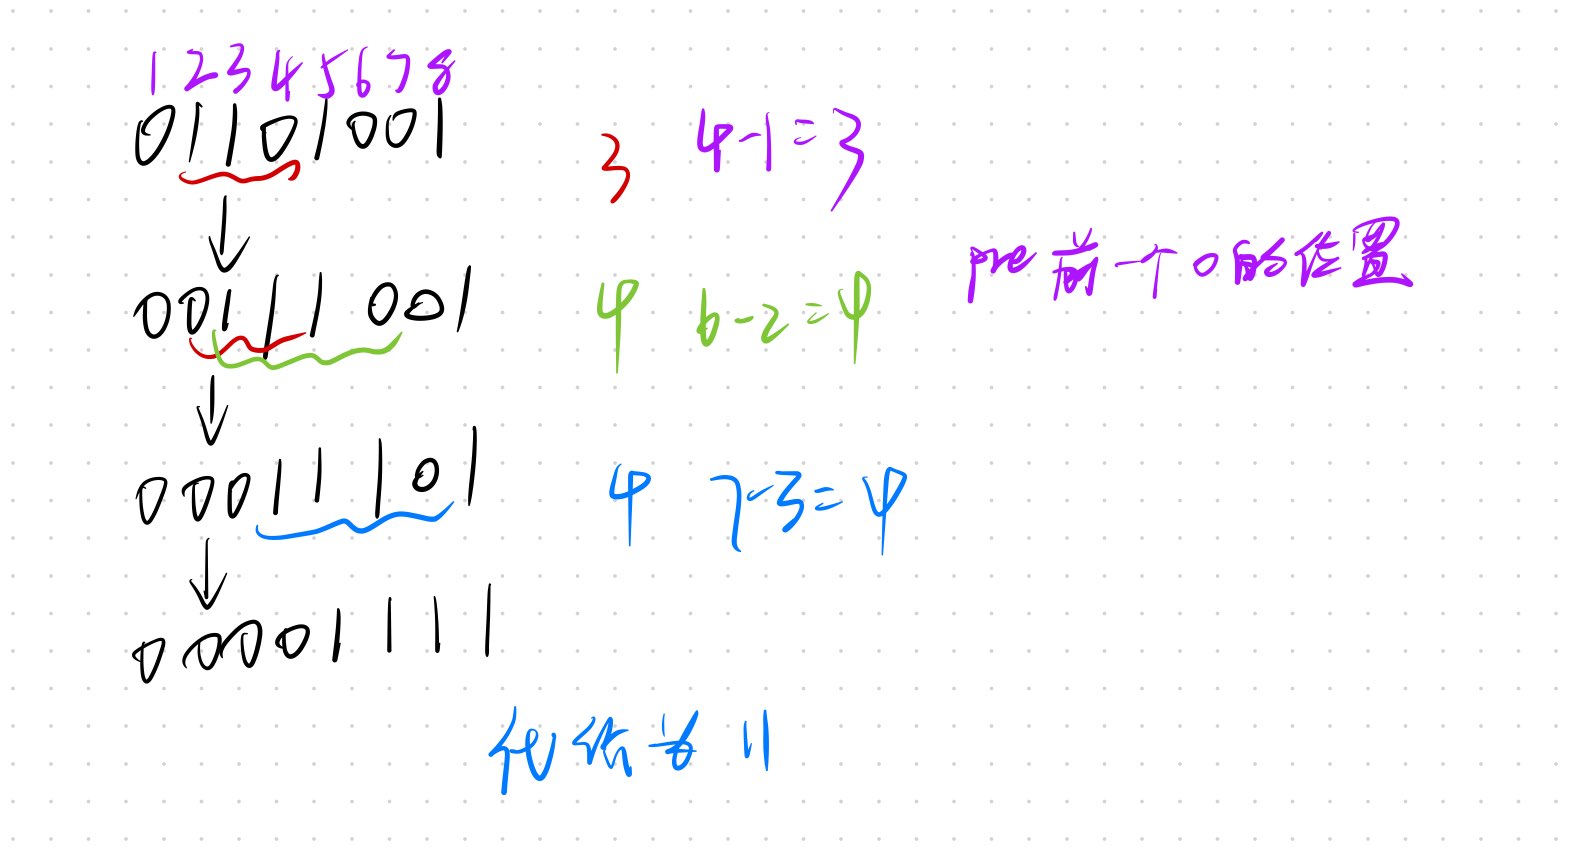 1 2 3 4 5 6 7 8
01101001 3 4-1=3
pre 前一个0的位置
00111001 4 6-2=4
00011101 4 7-3=4
00001111
代价为 11